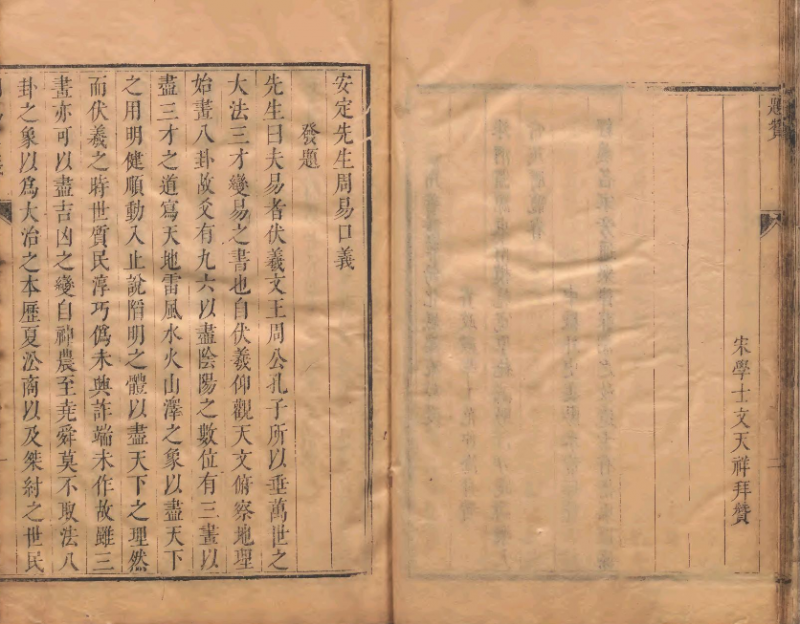 題贊
二
宋學士文天祥拜贊
安定先生周易口義
發題
先生曰夫易者伏羲文王周公孔子所以垂萬世之
大法三才變易之書也自伏羲仰觀天文俯察地理
始畫八卦故爻有九六以盡陰陽之數位有三畫以
盡三才之道寫天地雷風水火山澤之象以盡天下
之用明健順動入止說陷明之體以盡天下之理然
而伏羲之時世質民淳巧僞未興詐端未作故雖三
畫亦可以盡吉凶之變自神農至堯舜莫不取法八
卦之象以爲大治之本歷夏洎商以及桀紂之世民